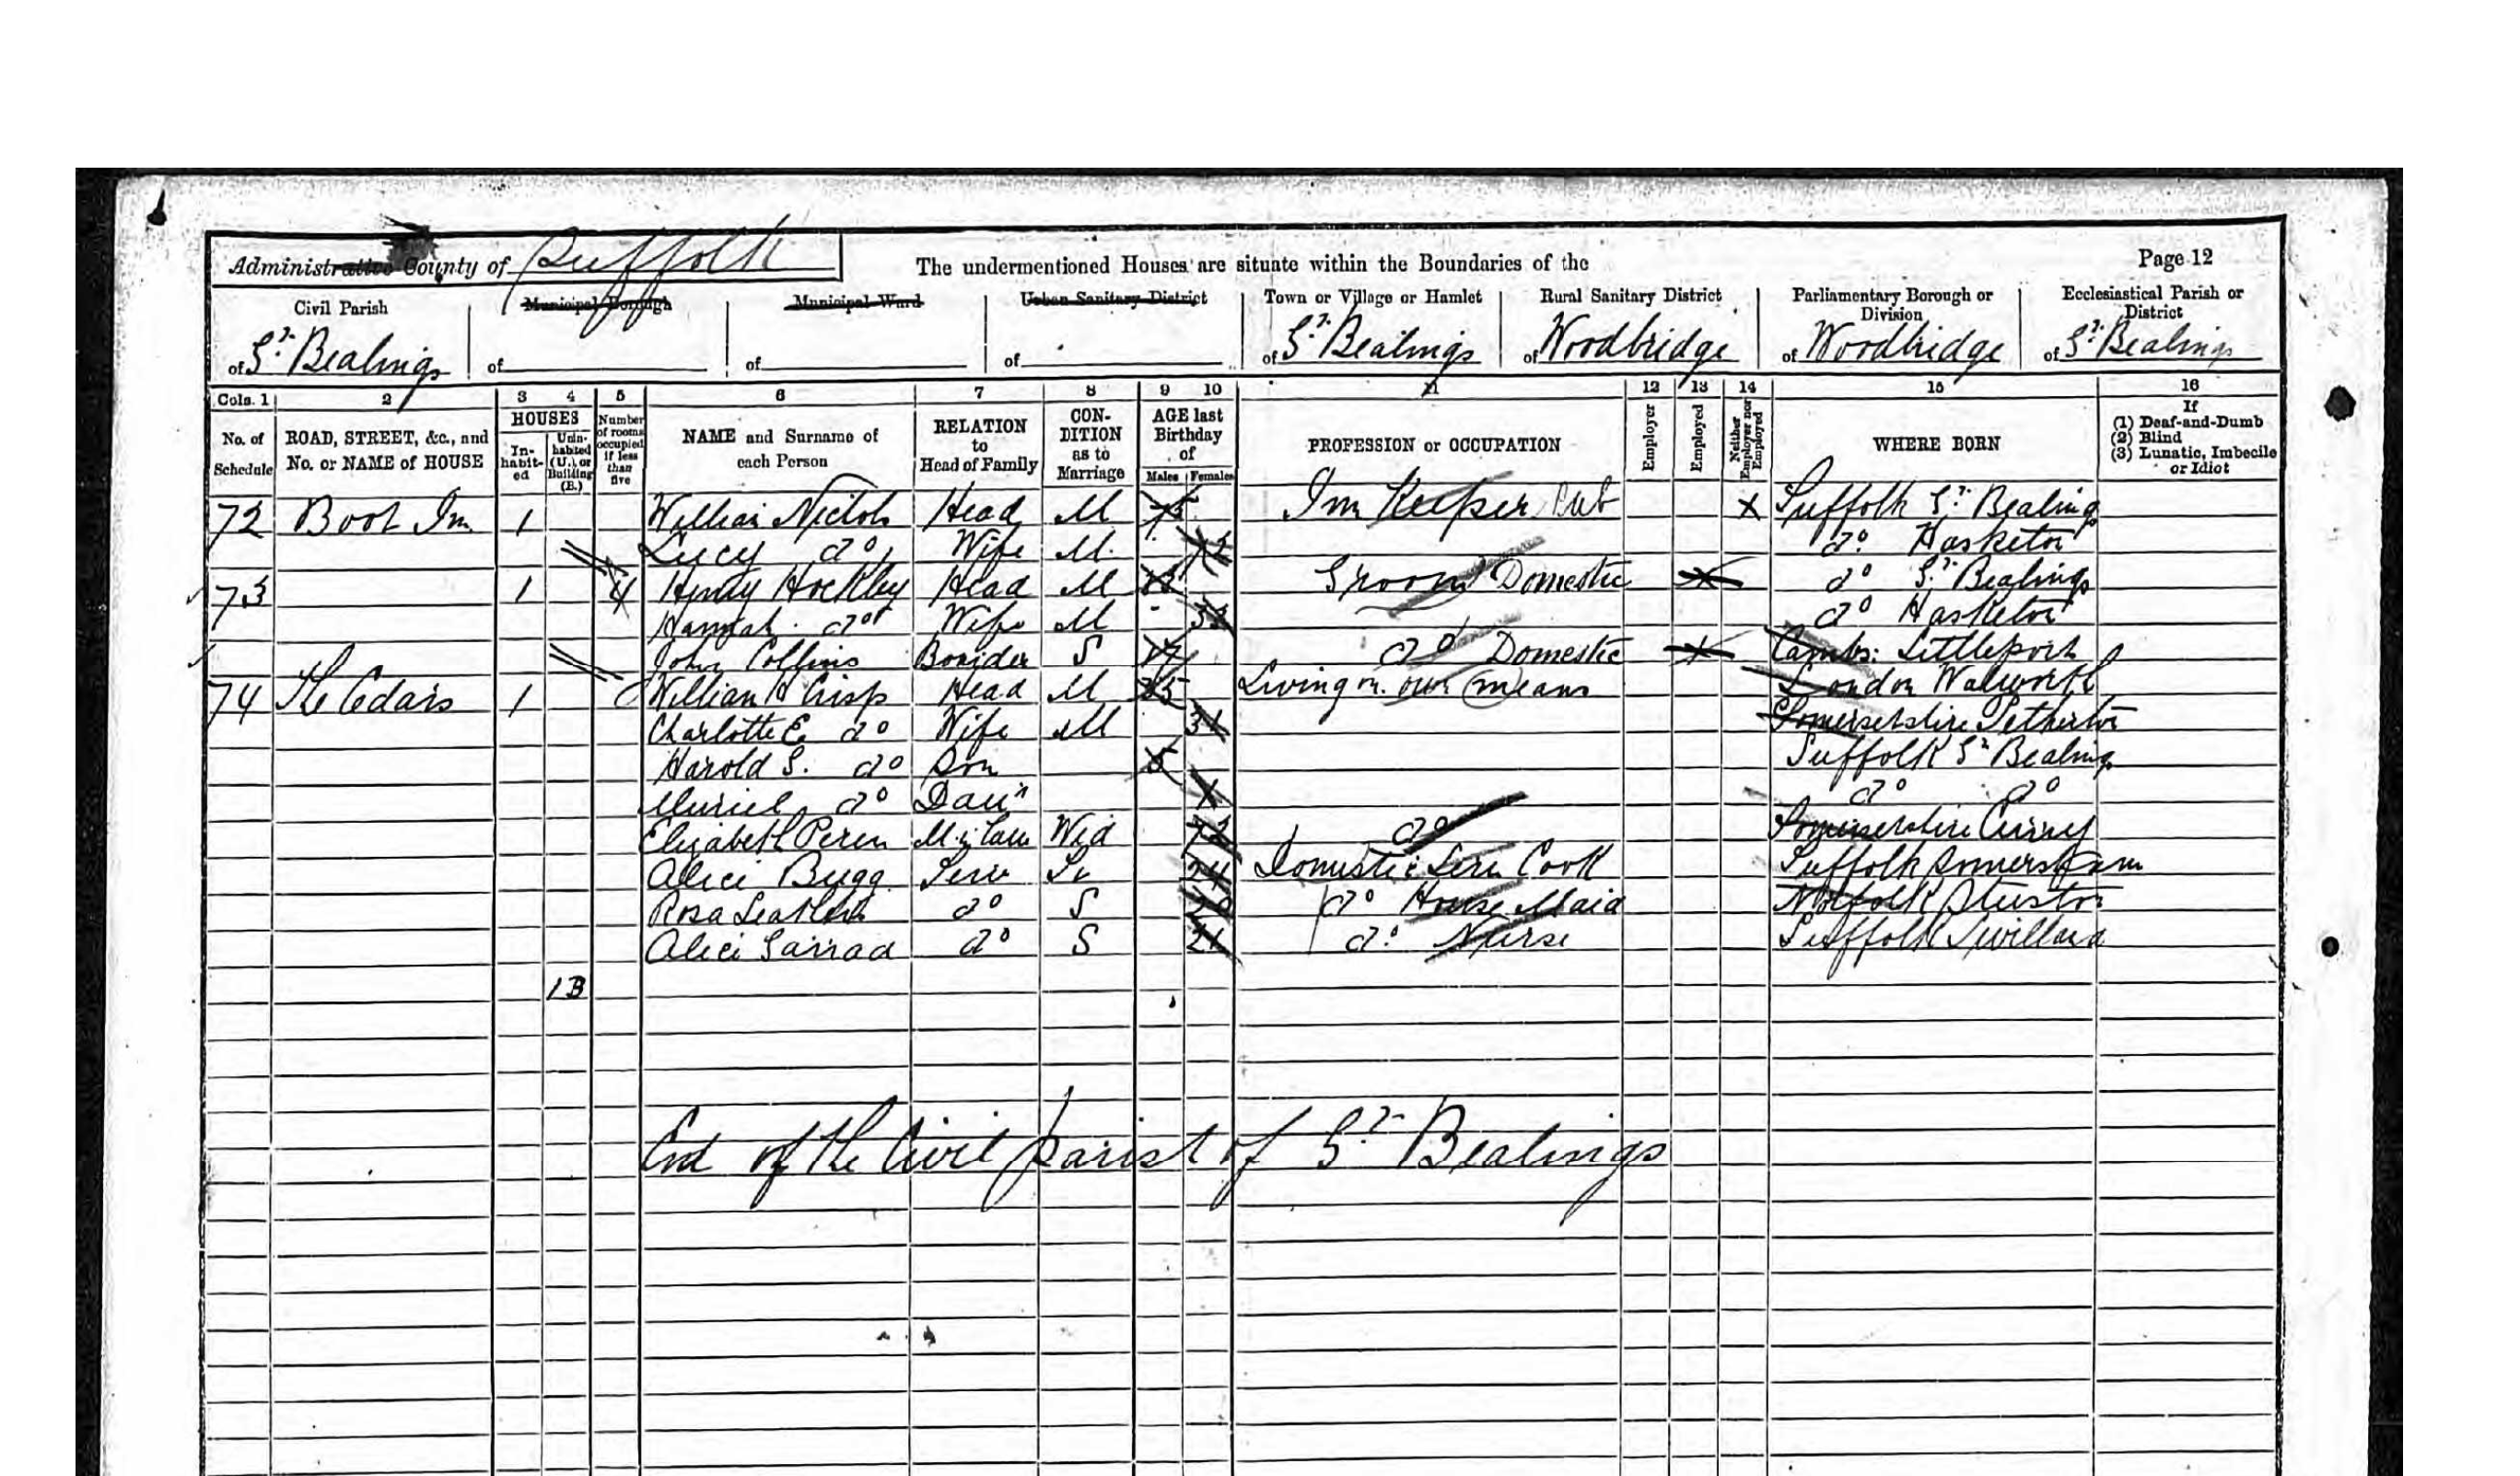 Administrative County of Suffolk
The undermentioned Houses are situate within the Boundaries of the
Page 12
Civil Parish
Municipal Borough
Municipal Ward
Urban Sanitary District
Town or Village or Hamlet
Rural Sanitary District
Parliamentary Borough or Division
Ecclesiastical Parish or District
of Gt. Bealings
of
of
of
of Gt. Bealings
of Woodbridge
of Woodbridge
of Gt. Bealings
Cols. 1 2 3 4 5 6 7 8 9 10 11 12 13 14 15 16
No. of Schedule
ROAD, STREET, &c., and No. or NAME of HOUSE
HOUSES
In-habit-ed
Unin-habited (U.), or Building (B.)
Number of rooms occupied if less than five
NAME and Surname of each Person
RELATION to Head of Family
CON-DITION as to Marriage
AGE last Birthday of
Males Females
PROFESSION or OCCUPATION
Employer
Employed
Neither Employer nor Employed
WHERE BORN
If
(1) Deaf-and-Dumb
(2) Blind
(3) Lunatic, Imbecile or Idiot
72 Boot Inn 1 William Head M Inn Keeper Pub X Suffolk Gt. Bealings
Lucy do Wife M. 72 do. Hasketon
73 1 4 Henry Hockley Head M Groom Domestic X do Gt. Bealings
Hannah do Wife M do Hasketon
John Collins Boarder S 17 do Domestic X Cambs: Littleport
74 The Cedars 1 William H Crisp Head M 35 Living on own means London Walworth
Charlotte E. do Wife M 31 Somersetshire Petherton
Harold S. do Son 5 Suffolk Gt Bealings
Muriel do Daur do do
Elizabeth Peren M. in law Wid do Somersetshire
Alice Bugg Serv 24 Domestic Serv Cook Suffolk Somersham
Rosa do S do House Maid Norfolk
Alice Garrad do S 21 do. Nurse Suffolk
1 B
End of the Civil parish of Gt Bealings